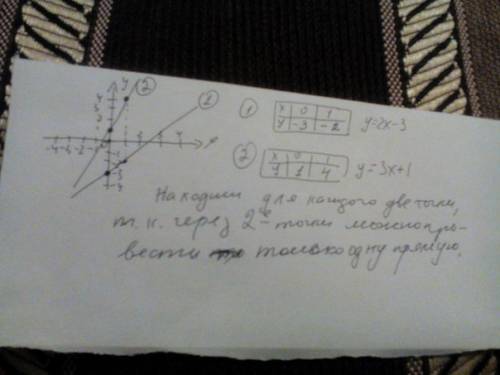 y
②
①
-4 -3 -2 -1
① x 0 1
y -3 -2
y=2x-3
② x 0 1
y 1 4
y=3x+1
Находим для каждого две точки,
т.к. через 2е точки можно про-
вести только одну прямую.